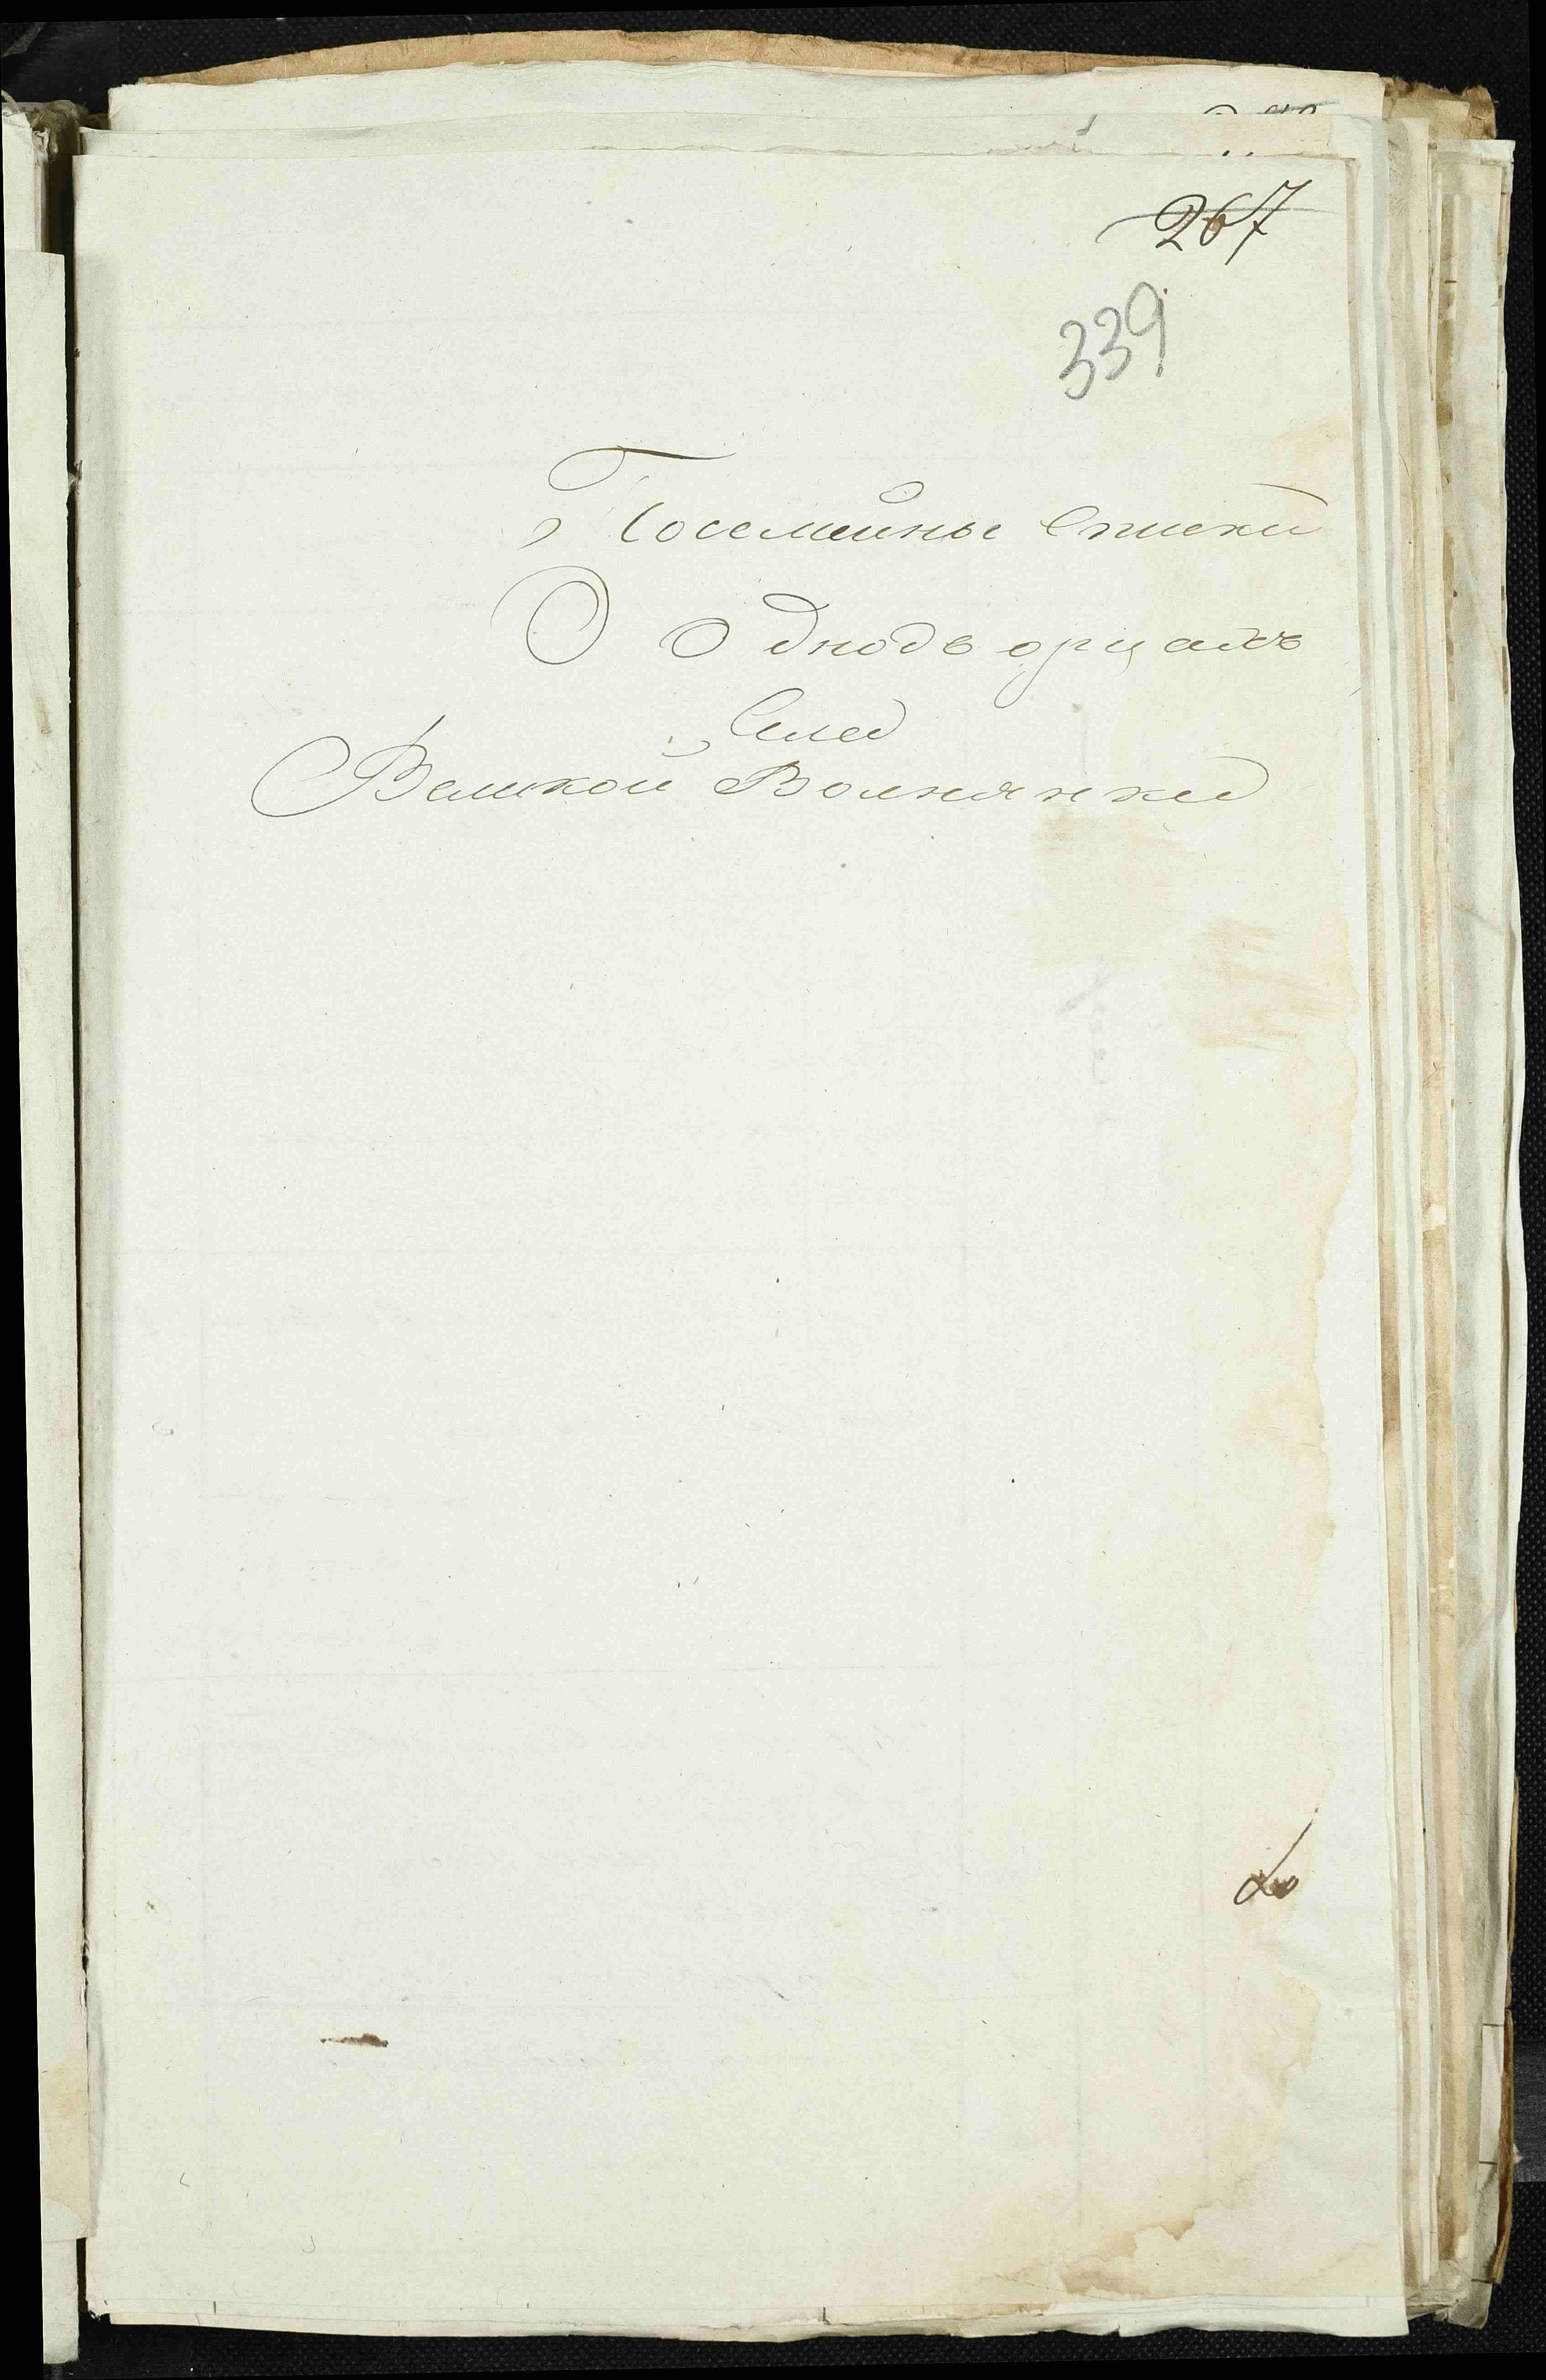 267
339
Посемейные Списки
О Однодворцахъ
Села
Великой Вольнянки